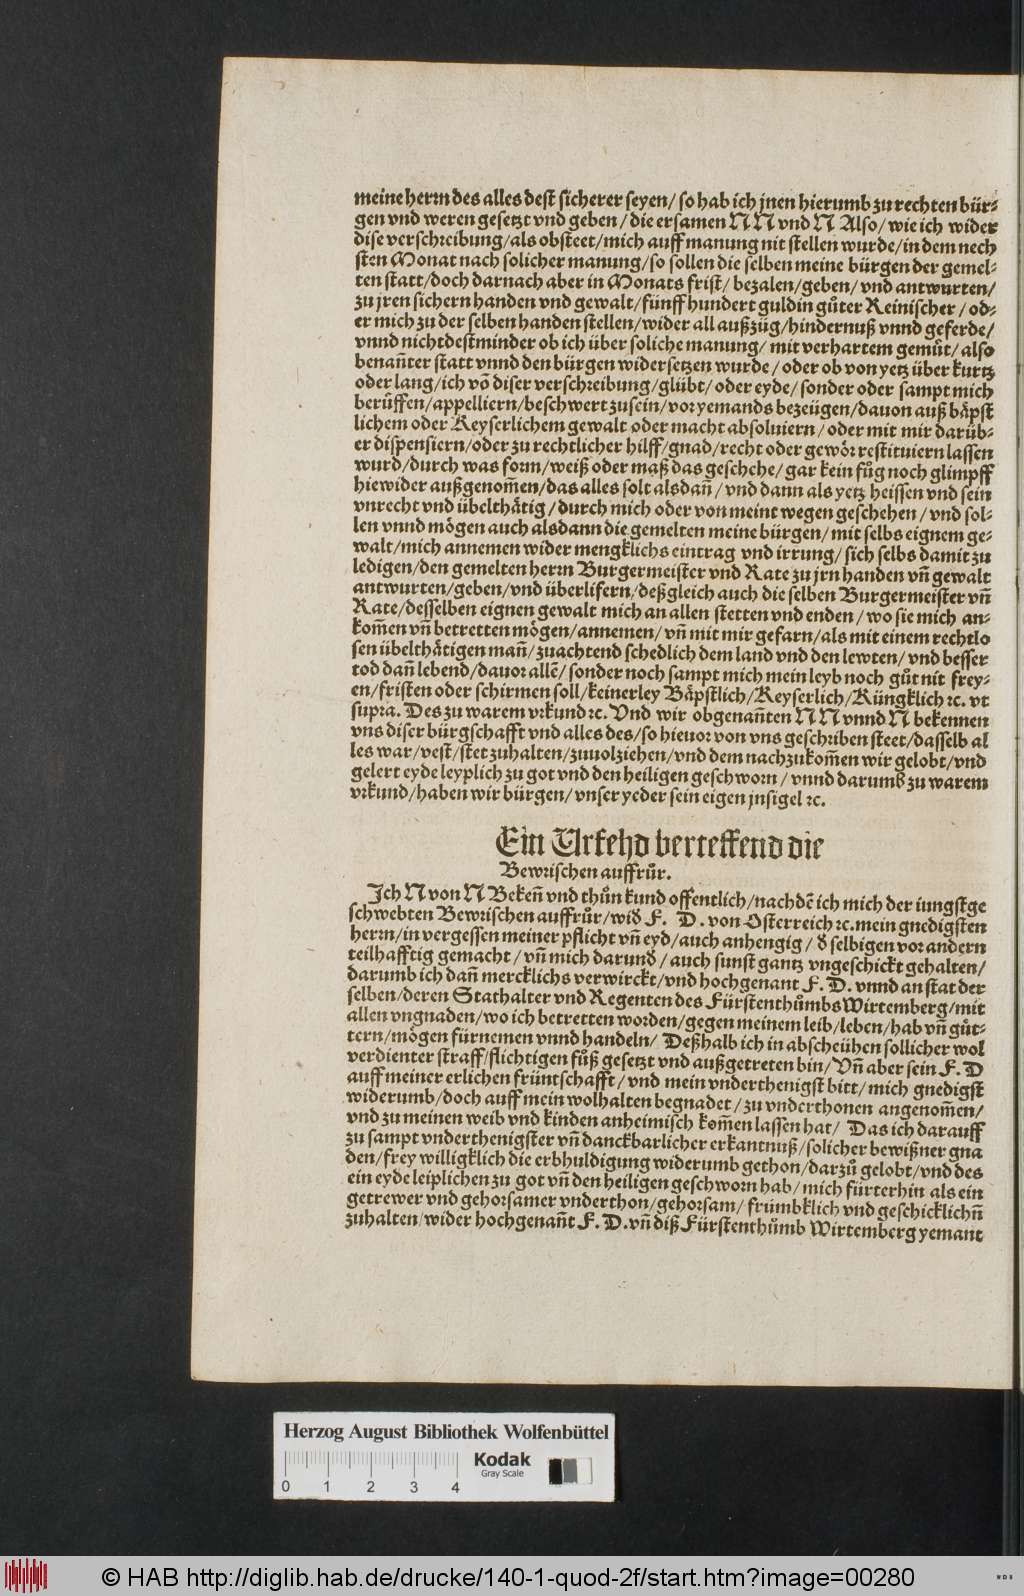 meine herrn des alles dest sicherer seyen / so hab ich jnen hierumb zu rechten bür-
gen vnd weren gesetzt vnd geben / die ersamen N N vnd N Also / wie ich wider
dise verschreibung / als obsteet / mich auff manung nit stellen wurde / in dem nech
sten Monat nach solicher manung / so sollen die selben meine bürgen der gemel-
ten statt / doch darnach aber in Monats frist / bezalen / geben / vnd antwurten /
zu jren sichern handen vnd gewalt / fünff hundert guldin gůter Reinischer / od-
er mich zu der selben handen stellen / wider all außzüg / hindernuß vnnd geferde /
vnnd nichtdestminder ob ich über soliche manung / mit verhartem gemůt / also
benan̄ter statt vnnd den bürgen widersetzen wurde / oder ob von yetz über kurtz
oder lang / ich võ diser verschreibung / glübt / oder eyde / sonder oder sampt mich
berůffen / appelliern / beschwert zusein / vor yemands bezeügen / dauon auß bäpst
lichem oder Keyserlichem gewalt oder macht absoluiern / oder mit mir darüb-
er dispensiern / oder zu rechtlicher hilff / gnad / recht oder gewör restituiern lassen
wurd / durch was form / weiß oder maß das geschehe / gar kein fůg noch glimpff
hiewider außgenom̄en / das alles solt alsdan̄ / vnd dann als yetz heissen vnd sein
vnrecht vnd übelthätig / durch mich oder von meint wegen geschehen / vnd sol-
len vnnd mögen auch alsdann die gemelten meine bürgen / mit selbs eignem ge-
walt / mich annemen wider mengklichs eintrag vnd irrung / sich selbs damit zu
ledigen / den gemelten herrn Burgermeister vnd Rate zu jrn handen vn̄ gewalt
antwurten / geben / vnd überlifern / deßgleich auch die selben Burgermeister vn̄
Rate / desselben eignen gewalt mich an allen stetten vnd enden / wo sie mich an-
kom̄en vn̄ betretten mögen / annemen / vn̄ mit mir gefarn / als mit einem rechtlo
sen übelthätigen man̄ / zuachtend schedlich dem land vnd den lewten / vnd besser
tod dan̄ lebend / dauor allē / sonder noch sampt mich mein leyb noch gůt nit frey-
en / fristen oder schirmen soll / keinerley Bäpstlich / Keyserlich / Küngklich ꝛc. vt
supra. Des zu warem vrkund ꝛc. Vnd wir obgenan̄ten N N vnnd N bekennen
vns diser bürgschafft vnd alles des / so hieuor von vns geschriben steet / dasselb al
les war / vest / stet zuhalten / zuuolziehen / vnd dem nachzukom̄en wir gelobt / vnd
gelert eyde leyplich zu got vnd den heiligen geschworn / vnnd darumb zu warem
vrkund / haben wir bürgen / vnser yeder sein eigen jnsigel ꝛc.
Ein Urfehd berteffend die
Bewrischen auffrůr.
Ich N von N Beken̄ vnd thůn kund offentlich / nachdē ich mich der iungst ge
schwebten Bewrischen auffrůr / wid̄ F. D. von Osterreich ꝛc. mein gnedigsten
herrn / in vergessen meiner pflicht vn̄ eyd / auch anhengig / d̄ selbigen vor andern
teilhafftig gemacht / vn̄ mich darund̄ / auch sunst gantz vngeschickt gehalten /
darumb ich dan̄ mercklichs verwirckt / vnd hochgenant F. D. vnnd an stat der
selben / deren Stathalter vnd Regenten des Fürstenthůmbs Wirtemberg / mit
allen vngnaden / wo ich betretten worden / gegen meinem leib / leben / hab vn̄ güt-
tern / mögen fürnemen vnnd handeln / Deßhalb ich in abscheühen sollicher wol
verdienter straff / flichtigen fůß gesetzt vnd außgetreten bin / Vn̄ aber sein F. D
auff meiner erlichen früntschafft / vnd mein vnderthenigst bitt / mich gnedigst
widerumb / doch auff mein wolhalten begnadet / zu vnderthonen angenom̄en /
vnd zu meinen weib vnd kinden anheimisch kom̄en lassen hat / Das ich darauff
zu sampt vnderthenigster vn̄ danckbarlicher erkantnuß / solicher bewißner gna
den / frey willigklich die erbhuldigung widerumb gethon / darzů gelobt / vnd des
ein eyde leiplichen zu got vn̄ den heiligen geschworn hab / mich fürterhin als ein
getrewer vnd gehorsamer vnderthon / gehorsam / frümbklich vnd geschicklichn̄
zuhalten / wider hochgenan̄t F. D. vn̄ diß Fürstenthůmb Wirtemberg yemant
Herzog August Bibliothek Wolfenbüttel
Kodak
Gray Scale
0 1 2 3 4
© HAB http://diglib.hab.de/drucke/140-1-quod-2f/start.htm?image=00280